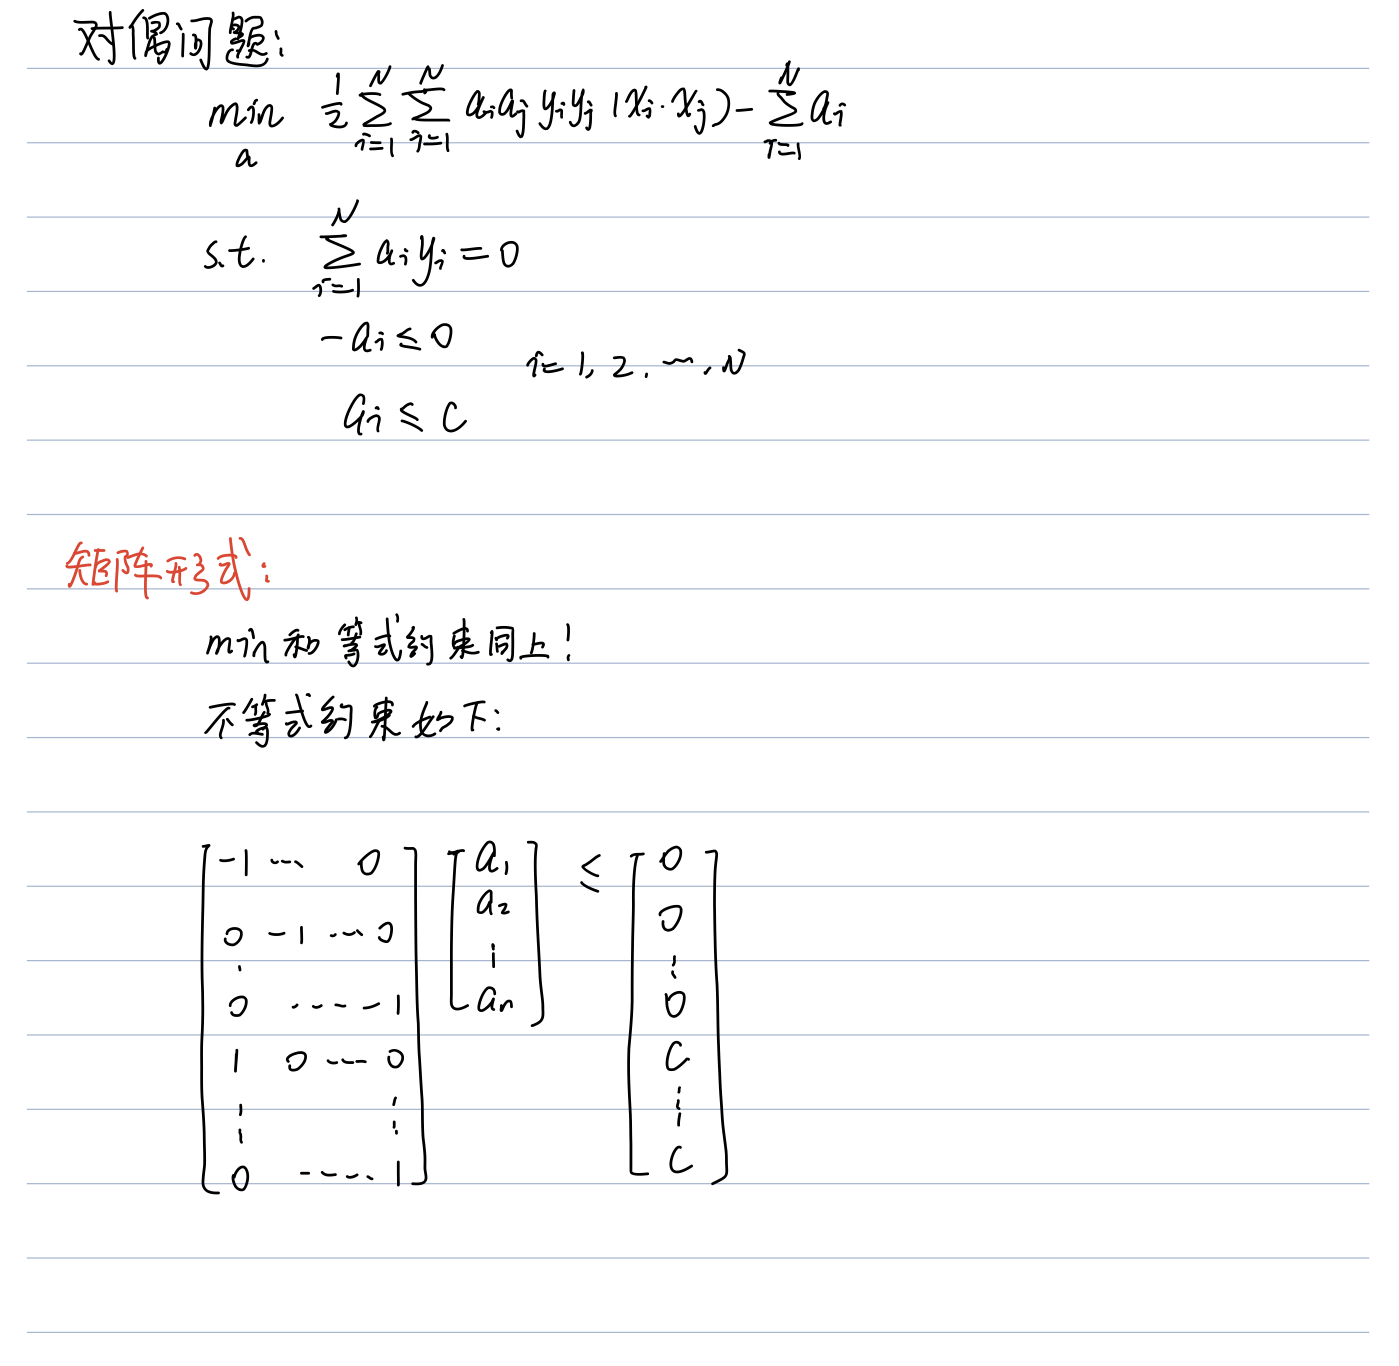 对偶问题:
min 1/2 ∑ᵢ₌₁ᴺ ∑ⱼ₌₁ᴺ aᵢaⱼ yᵢyⱼ (xᵢ·xⱼ) - ∑ᵢ₌₁ᴺ aᵢ
a
s.t. ∑ᵢ₌₁ᴺ aᵢyᵢ = 0
-aᵢ ≤ 0
i=1, 2, …, N
aᵢ ≤ C
矩阵形式:
min 和 等式约束同上!
不等式约束如下:
[-1 … 0] [a₁] ≤ [0]
[0 -1 … 0] [a₂] [0]
[⋮] [⋮] [⋮]
[0 … -1] [aₙ] [0]
[1 0 … 0] [C]
[⋮ ⋮] [⋮]
[0 … 1] [C]